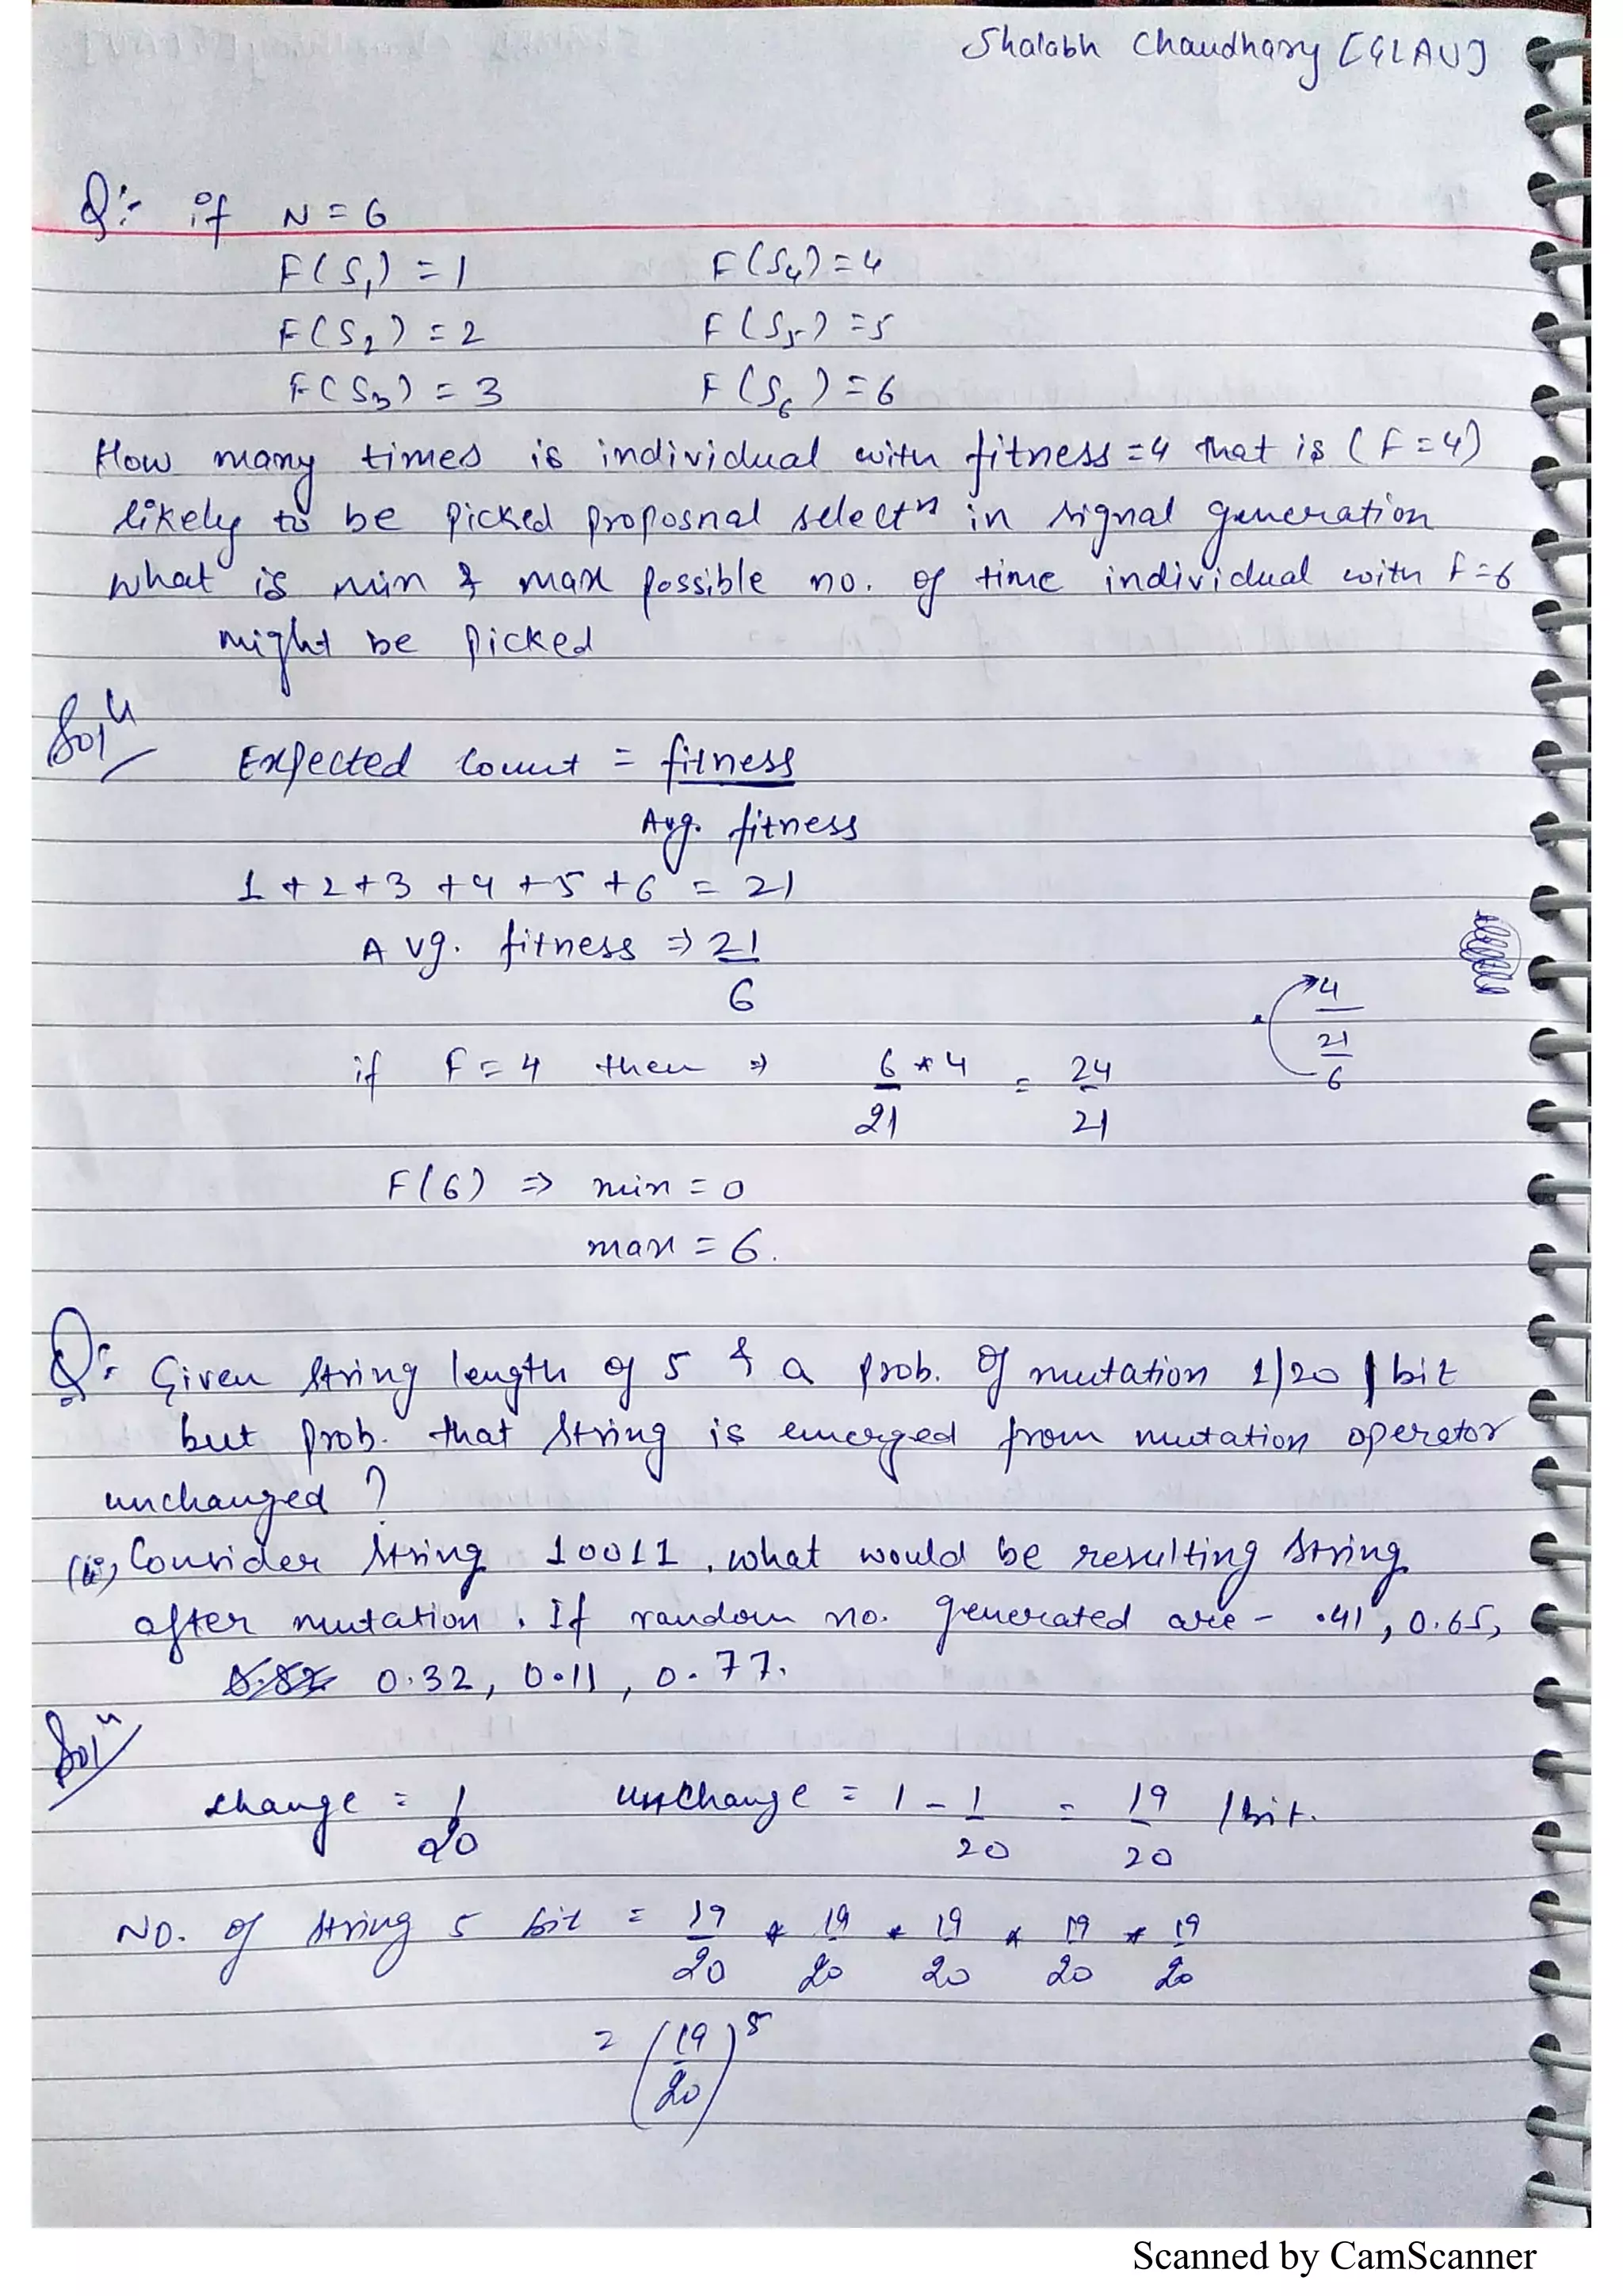 Shalabh Chaudhary [GLAU]
Q:- if N = 6
F(S1) = 1 F(S4) = 4
F(S2) = 2 F(S5) = 5
F(S3) = 3 F(S6) = 6
How many times is individual with fitness = 4 that is (F = 4)
likely to be picked proposnal selectn in signal generation
what is min & max possible no. of time individual with f = 6
might be picked
Soln
Expected Count = fitness
Avg. fitness
1 + 2 + 3 + 4 + 5 + 6 = 21
Avg. fitness => 21
6
4
21
6
if F = 4 then => 6 * 4 = 24
21 21
F(6) => min = 0
max = 6.
Q:- Given String length of 5 & a prob. of mutation 1/20 / bit
but prob. that String is emerged from mutation operator
unchanged ?
(ii) Consider String 10011, what would be resulting String
after mutation. If random no. generated are - .41, 0.65,
0.32, 0.11, 0.77.
Soln
change = 1 unchange = 1 - 1 = 19 /bit.
20 20 20
NO. of string 5 bit = 19 * 19 * 19 * 19 * 19
20 20 20 20 20
= (19)5
20
Scanned by CamScanner